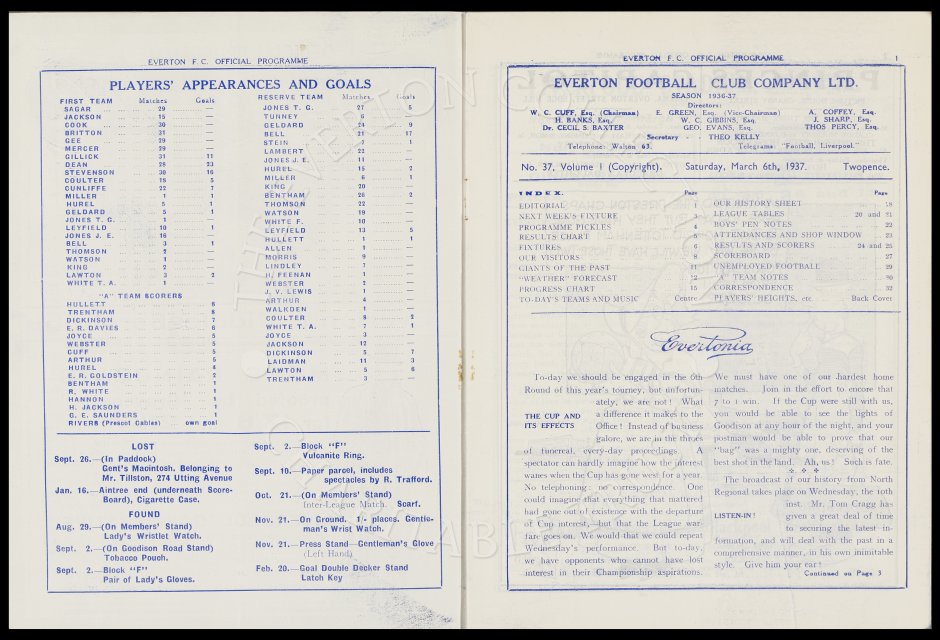 EVERTON F.C. OFFICIAL PROGRAMME
PLAYERS' APPEARANCES AND GOALS
FIRST TEAM Matches Goals
SAGAR 29 —
JACKSON 15 —
COOK 30 —
BRITTON 31 —
GEE 29 —
MERCER 29 —
GILLICK 31 11
DEAN 28 23
STEVENSON 30 16
COULTER 18 5
CUNLIFFE 22 7
MILLER 1 1
HUREL 5 1
GELDARD 5 1
JONES T. G. 1 —
LEYFIELD 10 1
JONES J. E. 16 —
BELL 3 1
THOMSON 5 —
WATSON 1 —
KING 2 —
LAWTON 3 2
WHITE T. A. 1 —
"A" TEAM SCORERS
HULLETT 8
TRENTHAM 8
DICKINSON 7
E. R. DAVIES 6
JOYCE 5
WEBSTER 5
CUFF 5
ARTHUR 5
HUREL 4
E. R. GOLDSTEIN 2
BENTHAM 1
R. WHITE 1
HANNON 1
H. JACKSON 1
G. E. SAUNDERS 1
RIVERS (Prescot Cables) own goal
RESERVE TEAM Matches Goals
JONES T. G. 27 5
TUNNEY 6 —
GELDARD 24 9
BELL 21 17
STEIN 7 1
LAMBERT 22 —
JONES J. E. 11 —
HUREL 15 2
MILLER 6 1
KING 20 —
BENTHAM 26 2
THOMSON 22 —
WATSON 19 —
WHITE F. 10 —
LEYFIELD 13 5
HULLETT 1 1
ALLEN 1 —
MORRIS 9 —
LINDLEY 7 —
H. FEENAN 1 —
WEBSTER 2 —
J. V. LEWIS 1 —
ARTHUR 4 —
WALKDEN 1 —
COULTER 8 2
WHITE T. A. 7 1
JOYCE 3 —
JACKSON 12 —
DICKINSON 5 7
LAIDMAN 11 3
LAWTON 5 6
TRENTHAM 3 —
LOST
Sept. 26.—(In Paddock)
Gent's Macintosh. Belonging to
Mr. Tillston, 274 Utting Avenue
Jan. 16.—Aintree end (underneath Score-
Board), Cigarette Case.
FOUND
Aug. 29.—(On Members' Stand)
Lady's Wristlet Watch.
Sept. 2.—(On Goodison Road Stand)
Tobacco Pouch.
Sept. 2.—Block "F"
Pair of Lady's Gloves.
Sept. 2.—Block "F"
Vulcanite Ring.
Sept. 10.—Paper parcel, includes
spectacles by R. Trafford.
Oct. 21.—(On Members' Stand)
Inter-League Match. Scarf.
Nov. 21.—On Ground. 1/- places. Gentle-
man's Wrist Watch.
Nov. 21.—Press Stand—Gentleman's Glove
(Left Hand)
Feb. 20.—Goal Double Decker Stand
Latch Key
EVERTON F.C. OFFICIAL PROGRAMME 1
EVERTON FOOTBALL CLUB COMPANY LTD.
SEASON 1936-37
Directors:
W. C. CUFF, Esq. (Chairman) E. GREEN, Esq. (Vice-Chairman) A. COFFEY, Esq.
H. BANKS, Esq. W. C. GIBBINS, Esq. J. SHARP, Esq.
Dr. CECIL S. BAXTER GEO. EVANS, Esq. THOS PERCY, Esq.
Secretary - - THEO KELLY
Telephone: Walton 63. Telegrams: "Football, Liverpool."
No. 37, Volume I (Copyright). Saturday, March 6th, 1937. Twopence.
INDEX. Page
EDITORIAL 1
NEXT WEEK'S FIXTURE 3
PROGRAMME PICKLES 4
RESULTS CHART 5
FIXTURES 6
OUR VISITORS 8
GIANTS OF THE PAST 11
"WEATHER" FORECAST 12
PROGRESS CHART 15
TO-DAY'S TEAMS AND MUSIC Centre
Page
OUR HISTORY SHEET 18
LEAGUE TABLES 20 and 21
BOYS' PEN NOTES 22
ATTENDANCES AND SHOP WINDOW 23
RESULTS AND SCORERS 24 and 25
SCOREBOARD 27
UNEMPLOYED FOOTBALL 29
"A" TEAM NOTES 30
CORRESPONDENCE 32
PLAYERS' HEIGHTS, etc. Back Cover
Evertonia
To-day we should be engaged in the 6th
Round of this year's tourney, but unfortun-
ately, we are not! What
THE CUP AND ITS EFFECTS
a difference it makes to the
Office! Instead of business
galore, we are in the throes
of funereal, every-day proceedings. A
spectator can hardly imagine how the interest
wanes when the Cup has gone west for a year.
No telephoning: no correspondence. One
could imagine that everything that mattered
had gone out of existence with the departure
of Cup interest, but that the League war-
fare goes on. We would that we could repeat
Wednesday's performance. But to-day,
we have opponents who cannot have lost
interest in their Championship aspirations.
We must have one of our hardest home
matches. Join in the effort to encore that
7 to 1 win. If the Cup were still with us,
you would be able to see the lights of
Goodison at any hour of the night, and your
postman would be able to prove that our
"bag" was a mighty one, deserving of the
best shot in the land. Ah, us! Such is fate.
The broadcast of our history from North
Regional takes place on Wednesday, the 10th
inst. Mr. Tom Cragg has
LISTEN-IN!
given a great deal of time
to securing the latest in-
formation, and will deal with the past in a
comprehensive manner, in his own inimitable
style. Give him your ear!
Continued on Page 3